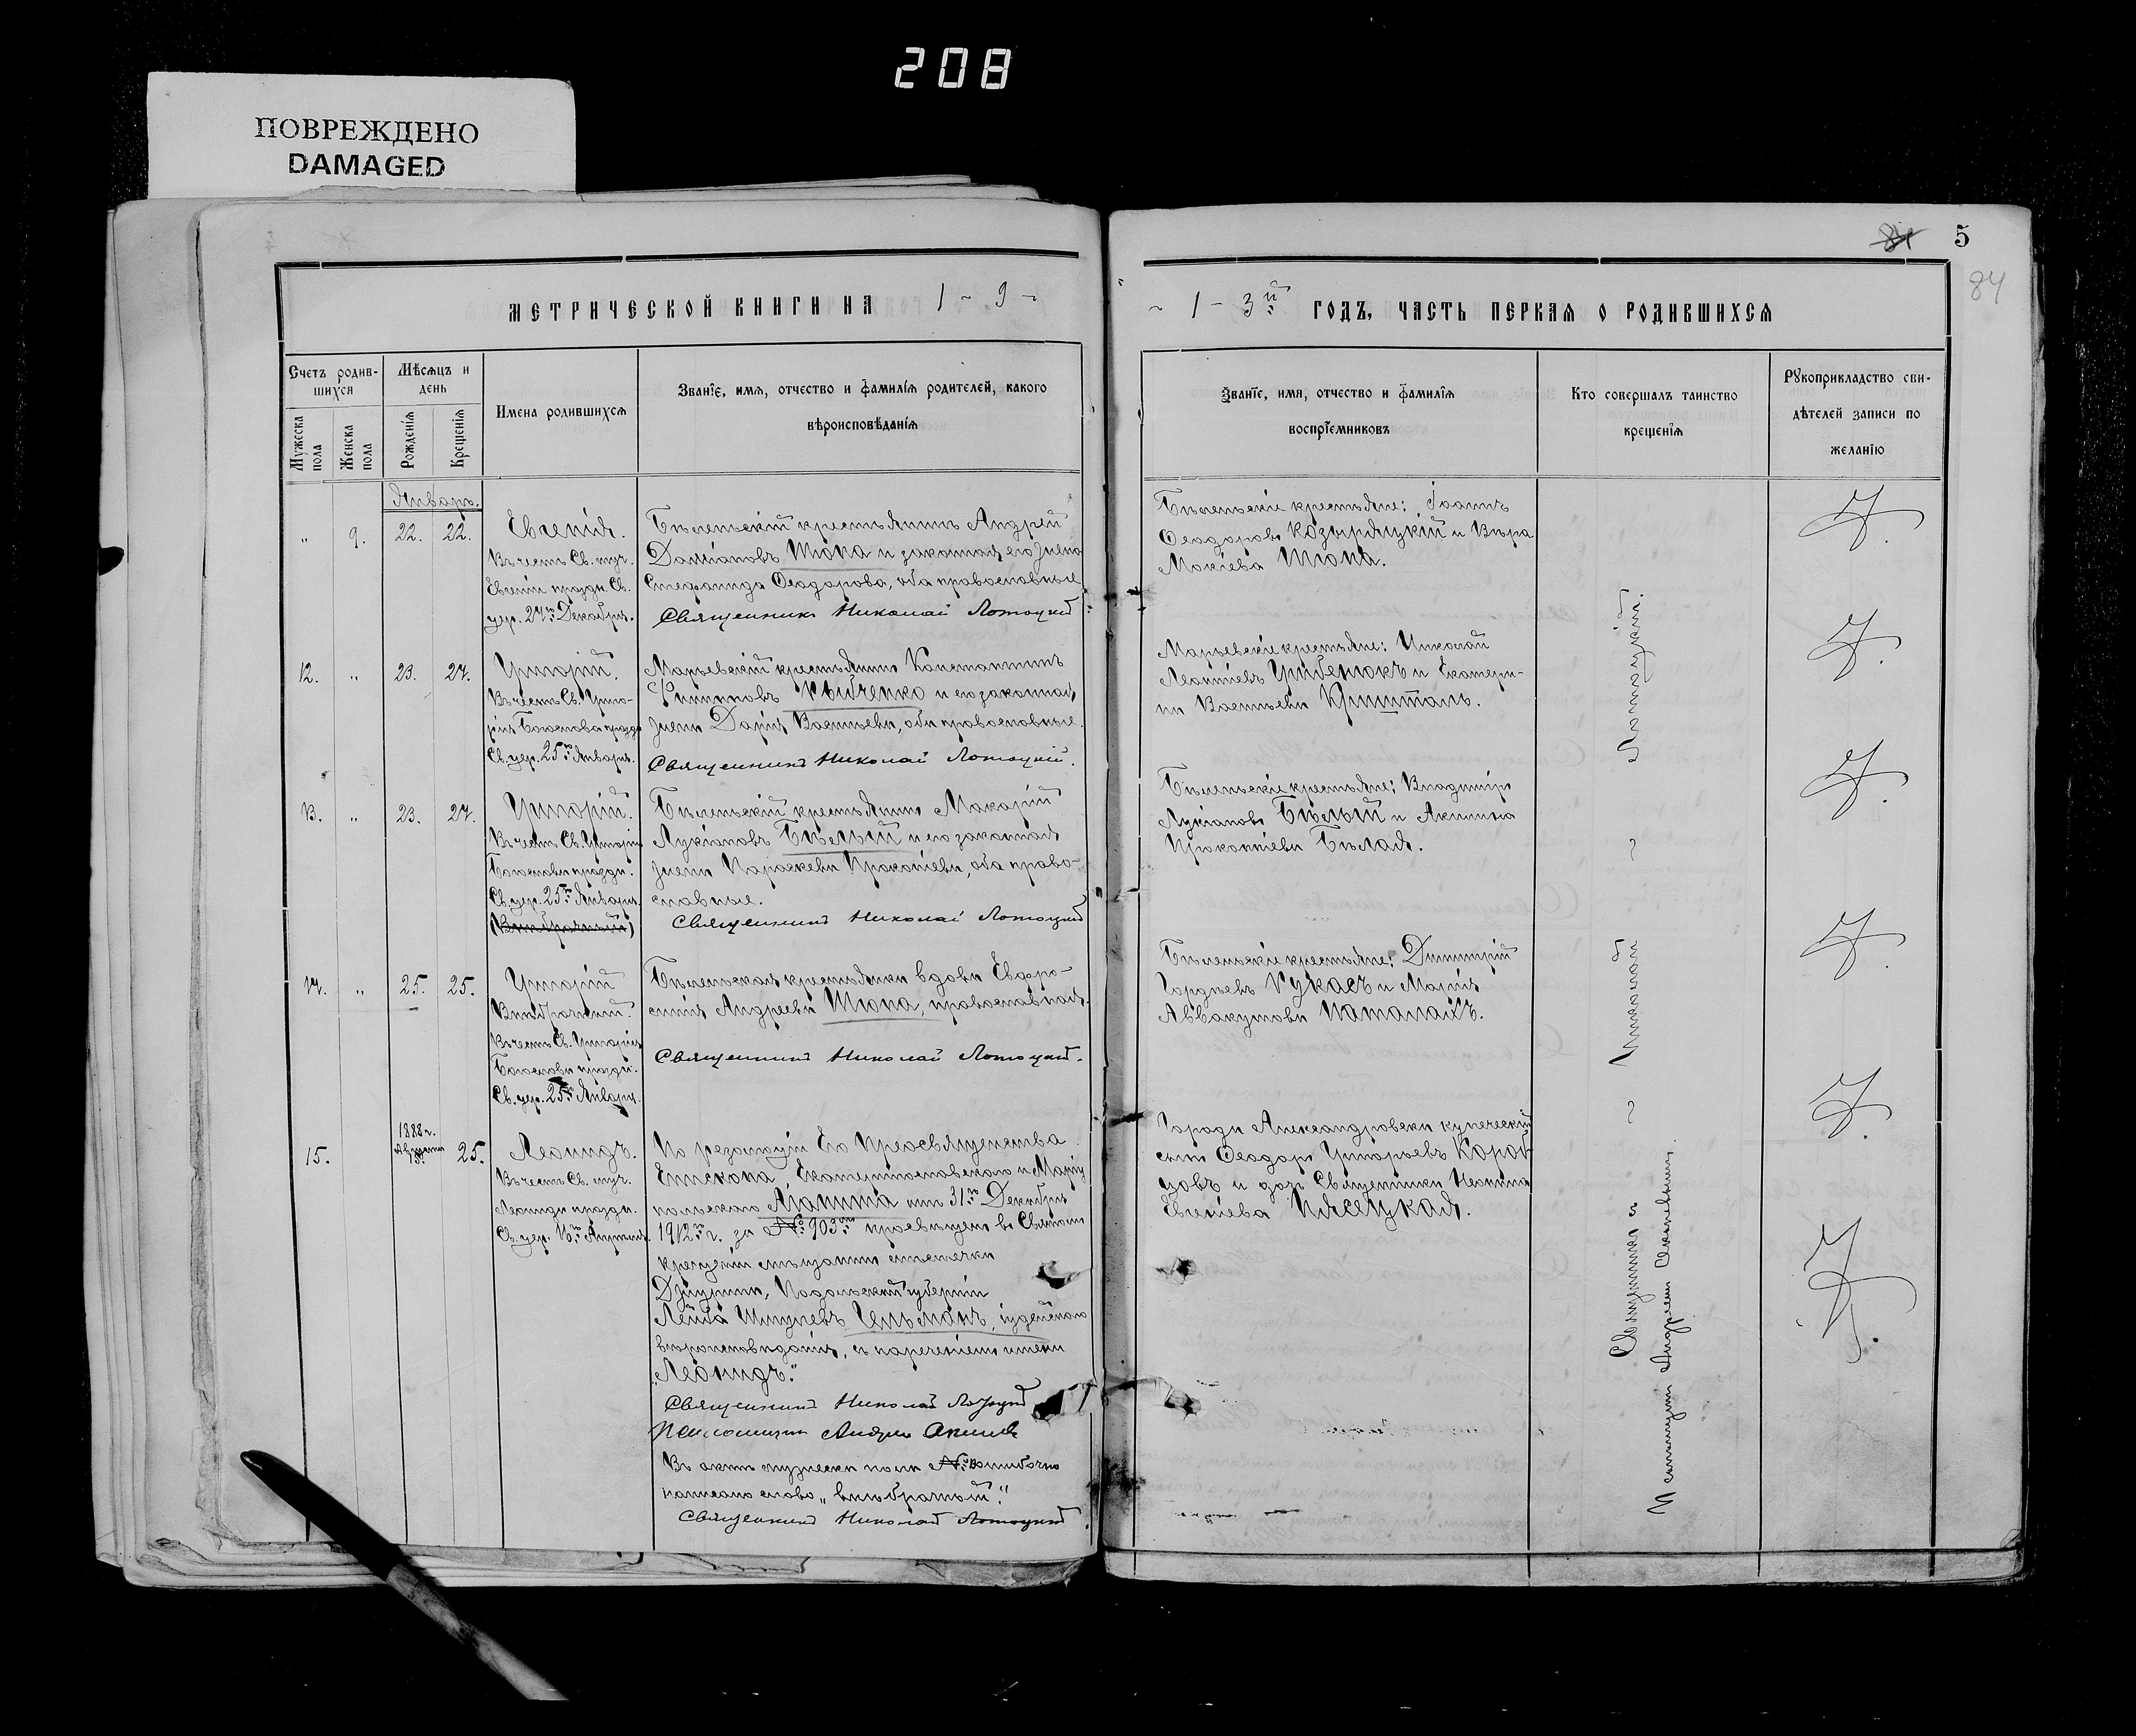 208
ПОВРЕЖДЕНО
DAMAGED
5
84
МЕТРИЧЕСКОЙ КНИГИ НА 1 - 9 -
- 1 - 3й ГОДЪ, ЧАСТЬ ПЕРВАЯ О РОДИВШИХСЯ
Счетъ родив-
шихся
Мужеска
пола
Женска
пола
Мѣсяцъ и
день
Рожденія
Крещенія
Имена родившихся
Званіе, имя, отчество и фамилія родителей, какого
вѣроисповѣданія
Званіе, имя, отчество и фамилія
воспріемниковъ
Кто совершалъ таинство
крещенія
Рукоприкладство сви-
дѣтелей записи по
желанію
Январь.
„ 9. 22. 22.
Евгенія.
Въ честь Св. муч.
Евгеніи праздн. Св.
цер. 24го Декабря.
Бѣленьскій крестьянинъ Андрей
Даміановъ Шопа и законная его жена
Стефанида Ѳеодорова, оба православные
Священникъ Николай Лотоцкій
Бѣленьскіе крестьяне: Іоаннъ
Ѳеодоровъ Козыряцкій и Вѣра
Мокіева Шопа.
12. „ 23. 27.
Григорій.
Въ честь Св. Григо-
рія Богослова праздн
Св. цер. 25го Января.
Марьевскій крестьянинъ Константинъ
Филипповъ и его законная
жена Дарія Васильева, оба православные.
Священникъ Николай Лотоцкій.
Марьевскіе крестьяне: Николай
Леонтіевъ и Екатери-
на Васильева Кришталь.
13. „ 23. 27.
Григорій.
Въ честь Св. Григорія
Богослова праздн.
Св. цер. 25го Января.
(Внѣбрачный)
Бѣленьскій крестьянинъ Макарій
Лукіановъ Бѣлый и его законная
жена Параскева Прокопіева, оба право-
славные.
Священникъ Николай Лотоцкій
Бѣленьскіе крестьяне: Владиміръ
Лукіановъ Бѣлый и Акилина
Прокопіева Бѣлая.
14. „ 25. 25.
Григорій
Внѣбрачный.
Въ честь Св. Григорія
Богослова праздн.
Св. цер. 25го Января.
Бѣленьская крестьянка вдова Евфро-
синія Андреева Шопа, православная.
Священникъ Николай Лотоцкій.
Бѣленьскіе крестьяне: Димитрій
Гордѣевъ Рукасъ и Марія
Аввакумова
15.
1888 г.
Августа
15.
25.
Леонидъ.
Въ честь Св. муч.
Леонида праздн.
Св. цер. 16го Апрѣля.
По резолюціи Его Преосвященства
Епископа Екатеринославскаго и Маріу
польскаго Агапита отъ 31го Декабря
1912го г. за № 903мъ просвѣщенъ въ Святомъ
крещеніи мѣщанинъ мѣстечка
Джурина, Подольской губерніи
Лейба Шмулевъ Гельманъ, іудейскаго
вѣроисповѣданія, съ нареченіемъ имени
„Леонидъ.“
Священникъ Николай Лотоцкій
Псаломщикъ Андрей
Въ актѣ мужеска пола №13 ошибочно
написано слово „внѣбрачный“.
Священникъ Николай Лотоцкій
Города Александровска купеческій
сынъ Ѳеодоръ Григорьевъ Короб
цовъ и дочь Священника Неонила
Евгеніева
Священникъ Николай Лотоцкій.
Псаломщикъ Андрей